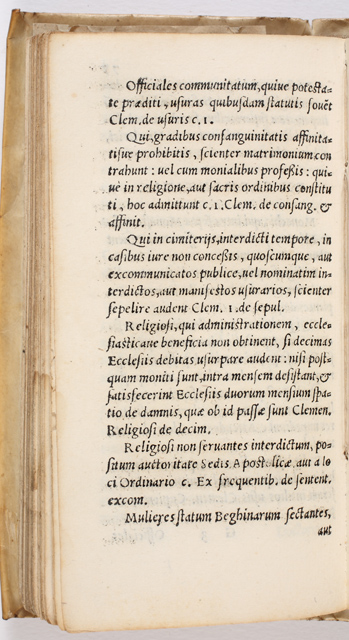 Officiales communitatum, quiue potesta-
te præditi, usuras quibusdam statutis fouēt
Clem. de usuris c. 1.
Qui, gradibus consanguinitatis affinita-
tisue prohibitis, scienter matrimonium con
trahunt: uel cum monialibus profeßis: qui-
uè in religione, aut sacris ordinibus constitu
ti, hoc admittunt c. 1. Clem. de consang. &
affinit.
Qui in cimiterijs, interdicti tempore, in
casibus iure non conceßis, quoscumque, aut
excommunicatos publice, uel nominatim in-
terdictos, aut manifestos usurarios, scienter
sepelire audent Clem. 1. de sepul.
Religiosi, qui administrationem, eccle-
siasticaue beneficia non obtinent, si decimas
Ecclesiis debitas usurpare audent: nisi post-
quam moniti sunt, intra mensem desistant, &
satisfecerint Ecclesiis duorum mensium spa-
tio de damnis, quæ ob id passæ sunt Clemen.
Religiosi de decim.
Religiosi non seruantes interdictum, po-
situm auctoritate Sedis Apostolicæ, aut a lo
ci Ordinario c. Ex frequentib. de sentent.
excom.
Mulieres statum Beghinarum sectantes,
aut